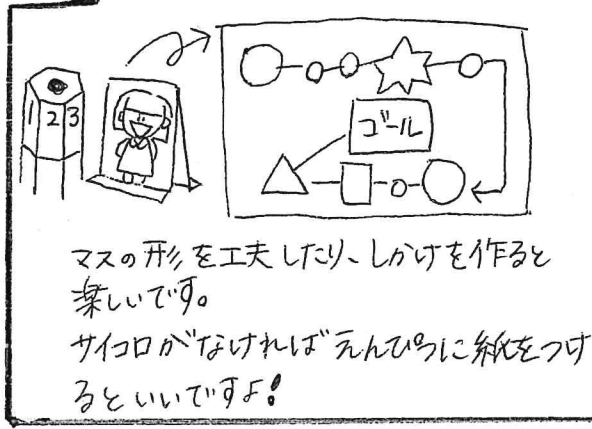 1 2 3
ゴール
マスの形を工夫したり、しかけを作ると
楽しいです。
サイコロがなければえんぴつに紙をつけ
るといいですよ!